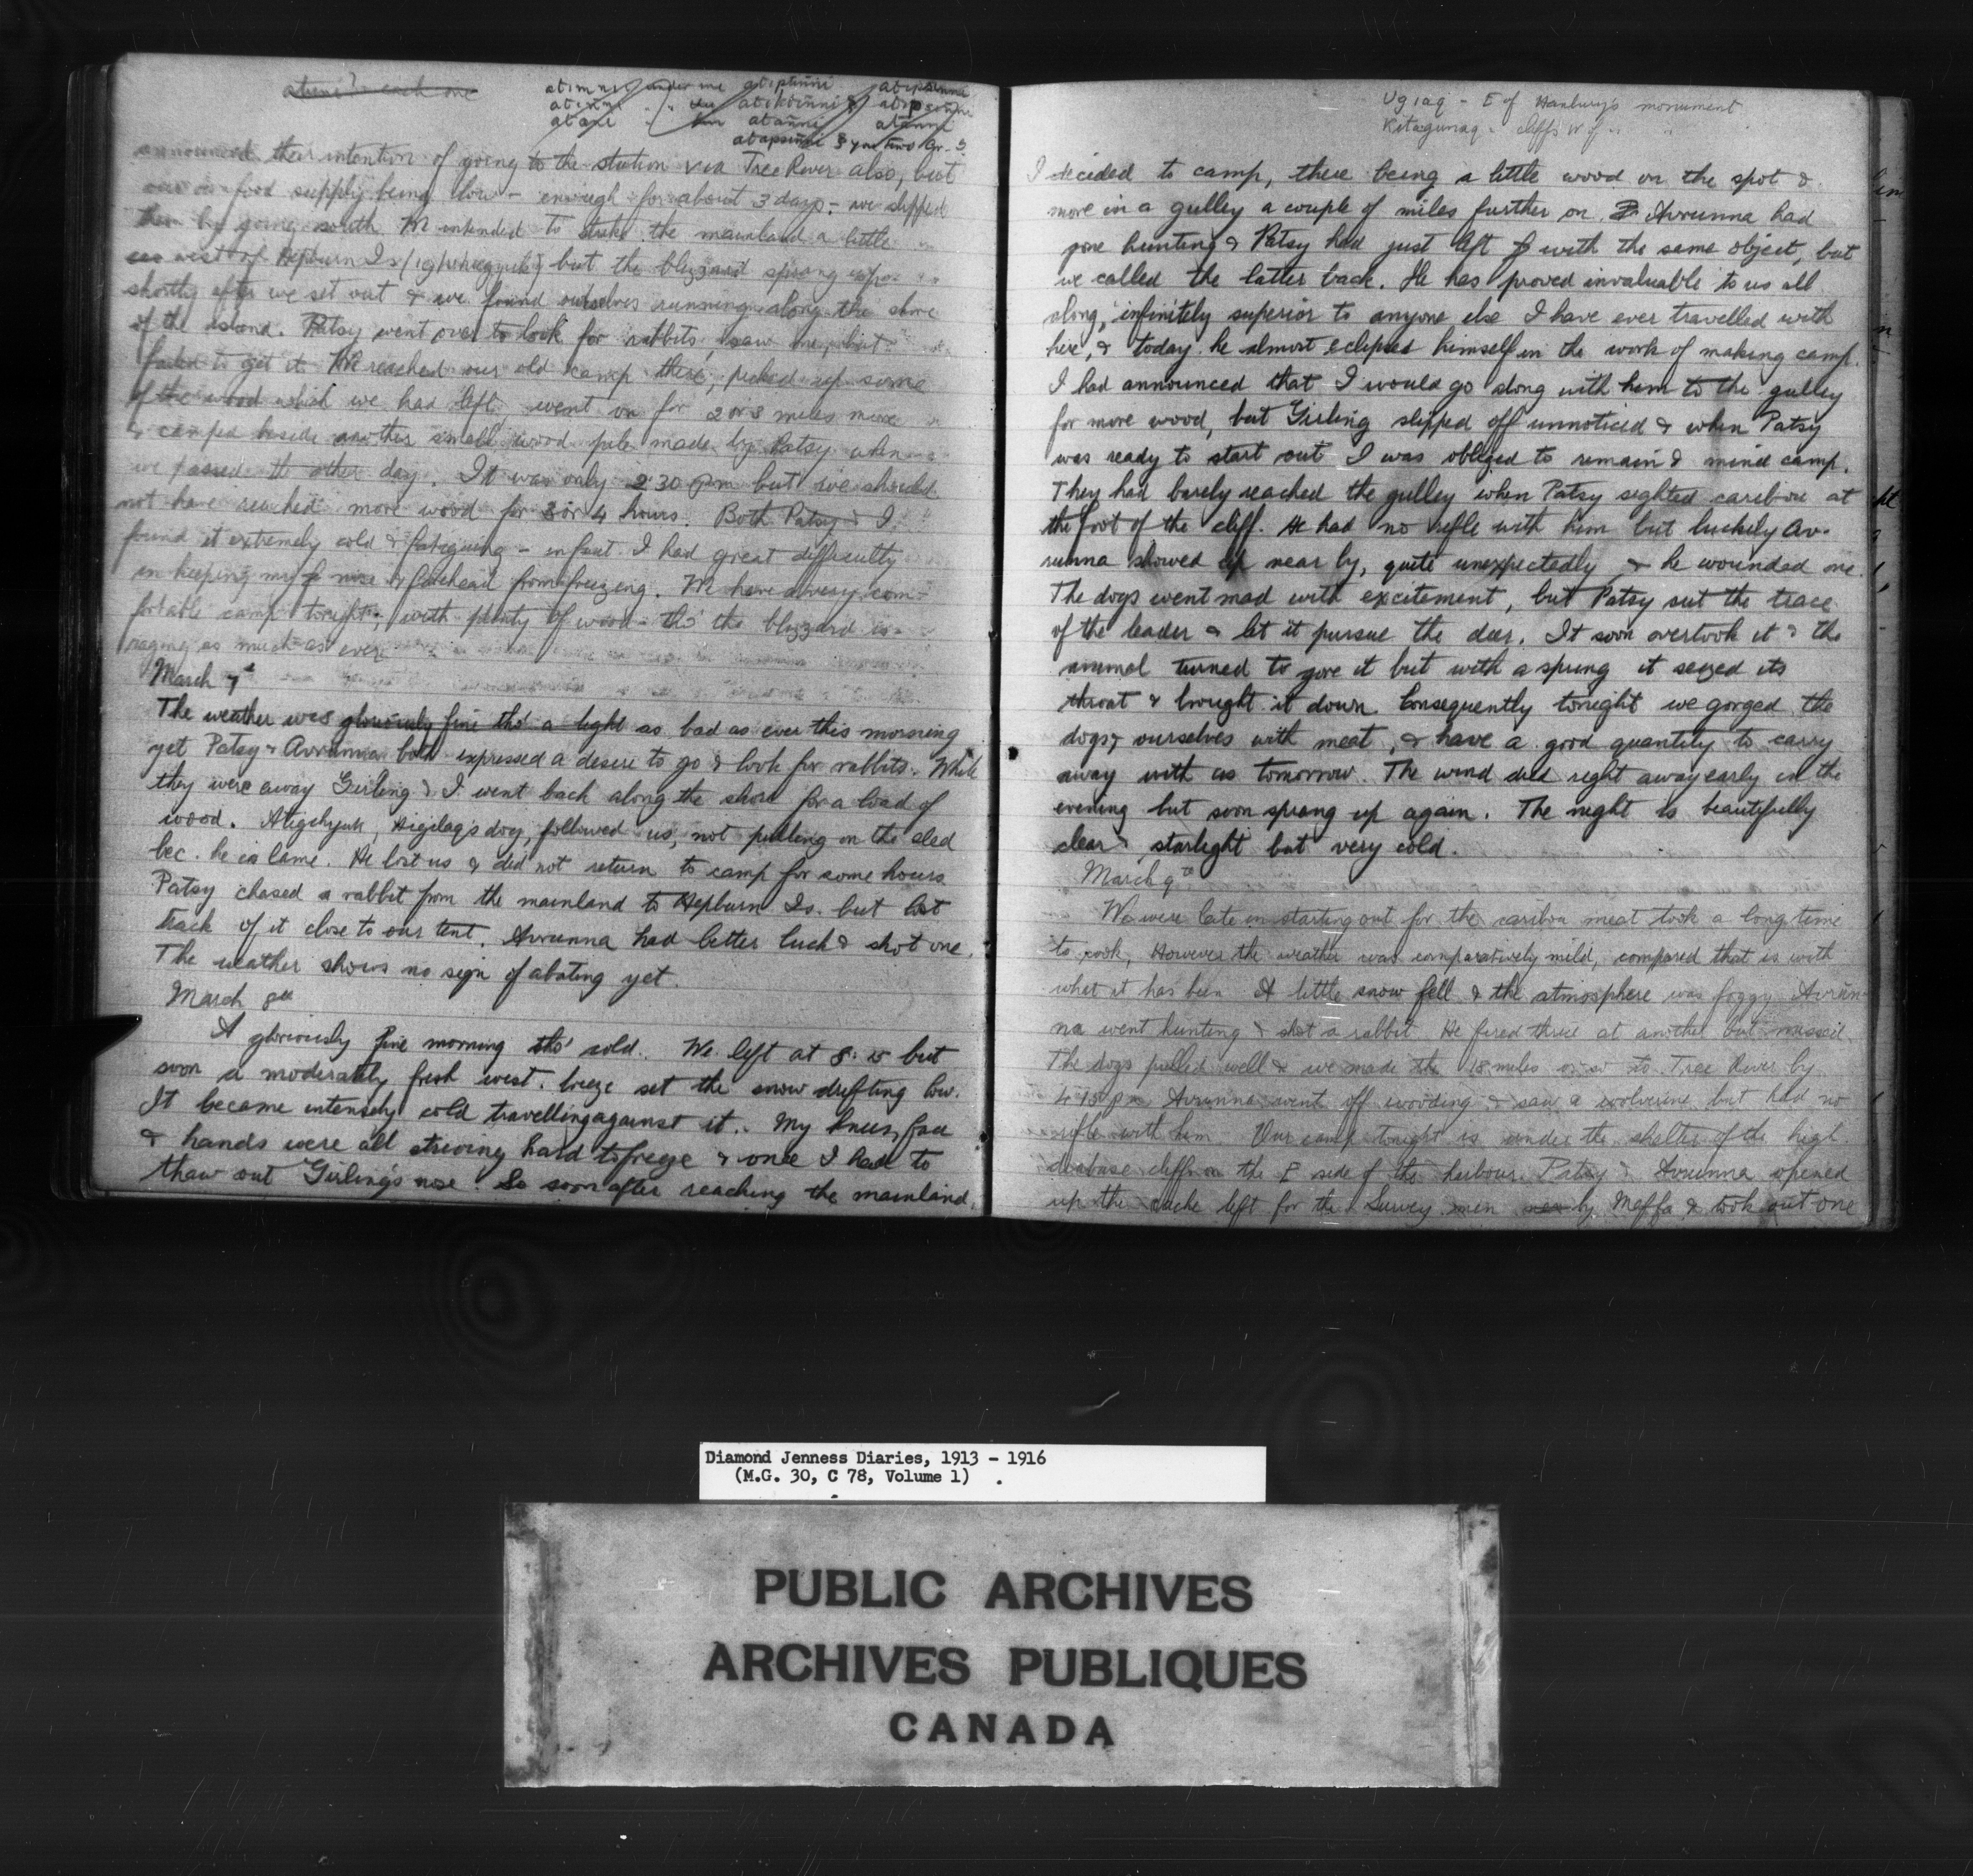 atuni? each one
atimni under me atiptinni
atapsinni & you two or 3
announced their intention of going to the station via Tree River also, but
our own food supply being low - enough for about 3 days - we slipped
them by going south. We intended to strike the mainland a little
west of Hepburn Is. but the blizzard sprang up
shortly after we set out & we found ourselves running along the shore
of the island. Patsy went over to look for rabbits, saw one, but
failed to get it. We reached our old camp there, picked up some
of the wood which we had left, went on for 2 or 3 miles more
& camped beside another small wood pile made by Patsy when
we passed the other day. It was only 2.30 pm but we should
not have reached more wood for 3 or 4 hours. Both Patsy & I
found it extremely cold & fatiguing - in fact I had great difficulty
in keeping my nose & forehead from freezing. We have a very com-
fortable camp tonight, with plenty of wood - tho' the blizzard is
raging as much as ever
March 7th
The weather was gloriously fine tho' a light as bad as ever this morning
yet Patsy & Avrunna both expressed a desire to go & look for rabbits. While
they were away Girling & I went back along the shore for a load of
wood. Atigihyuk, Higilaq's dog, followed us, not pulling on the sled
bec. he is lame. He lost us & did not return to camp for some hours
Patsy chased a rabbit from the mainland to Hepburn Is. but lost
track of it close to our tent. Avrunna had better luck & shot one.
The weather shows no sign of abating yet.
March 8th
A gloriously fine morning tho' cold. We left at 8.15 but
soon a moderately fresh west. breeze set the snow drifting low.
It became intensely cold travelling against it. My knees, face
& hands were all striving hard to freeze & once I had to
thaw out Girling's nose. So soon after reaching the mainland,
Ugiaq - E of Hanbury's monument
Kitagunaq - cliffs W of " "
I decided to camp, there being a little wood on the spot &
more in a gulley a couple of miles further on. Avrunna had
gone hunting & Patsy had just left with the same object, but
we called the latter back. He has proved invaluable to us all
along, infinitely superior to anyone else I have ever travelled with
here, & today he almost eclipsed himself in the work of making camp.
I had announced that I would go along with him to the gulley
for more wood, but Girling slipped off unnoticed & when Patsy
was ready to start out I was obliged to remain & mind camp.
They had barely reached the gulley when Patsy sighted caribou at
the foot of the cliff. He had no rifle with him but luckily Av-
runna showed up near by, quite unexpectedly, & he wounded one.
The dogs went mad with excitement, but Patsy cut the trace
of the leader & let it pursue the deer. It soon overtook it & the
animal turned to gore it but with a spring it seized its
throat & brought it down. Consequently tonight we gorged the
dogs & ourselves with meat, & have a good quantity to carry
away with us tomorrow. The wind died right away early in the
evening but soon sprang up again. The night is beautifully
clear & starlight but very cold.
March 9th
We were late in starting out for the caribou meat took a long time
to cook, However the weather was comparatively mild, compared that is with
what it has been. A little snow fell & the atmosphere was foggy. Avrun-
na went hunting & shot a rabbit. He fired thrice at another but missed.
The dogs pulled well & we made the 18 miles or so to Tree River by
4.15 pm. Avrunna went off wooding & saw a wolverine but had no
rifle with him. Our camp tonight is under the shelter of the high
diabase cliffs on the E side of the harbour. Patsy & Avrunna opened
up the cache left for the Survey men by Maffa & took out one
Diamond Jenness Diaries, 1913 - 1916
(M.G. 30, C 78, Volume 1)
PUBLIC ARCHIVES
ARCHIVES PUBLIQUES
CANADA